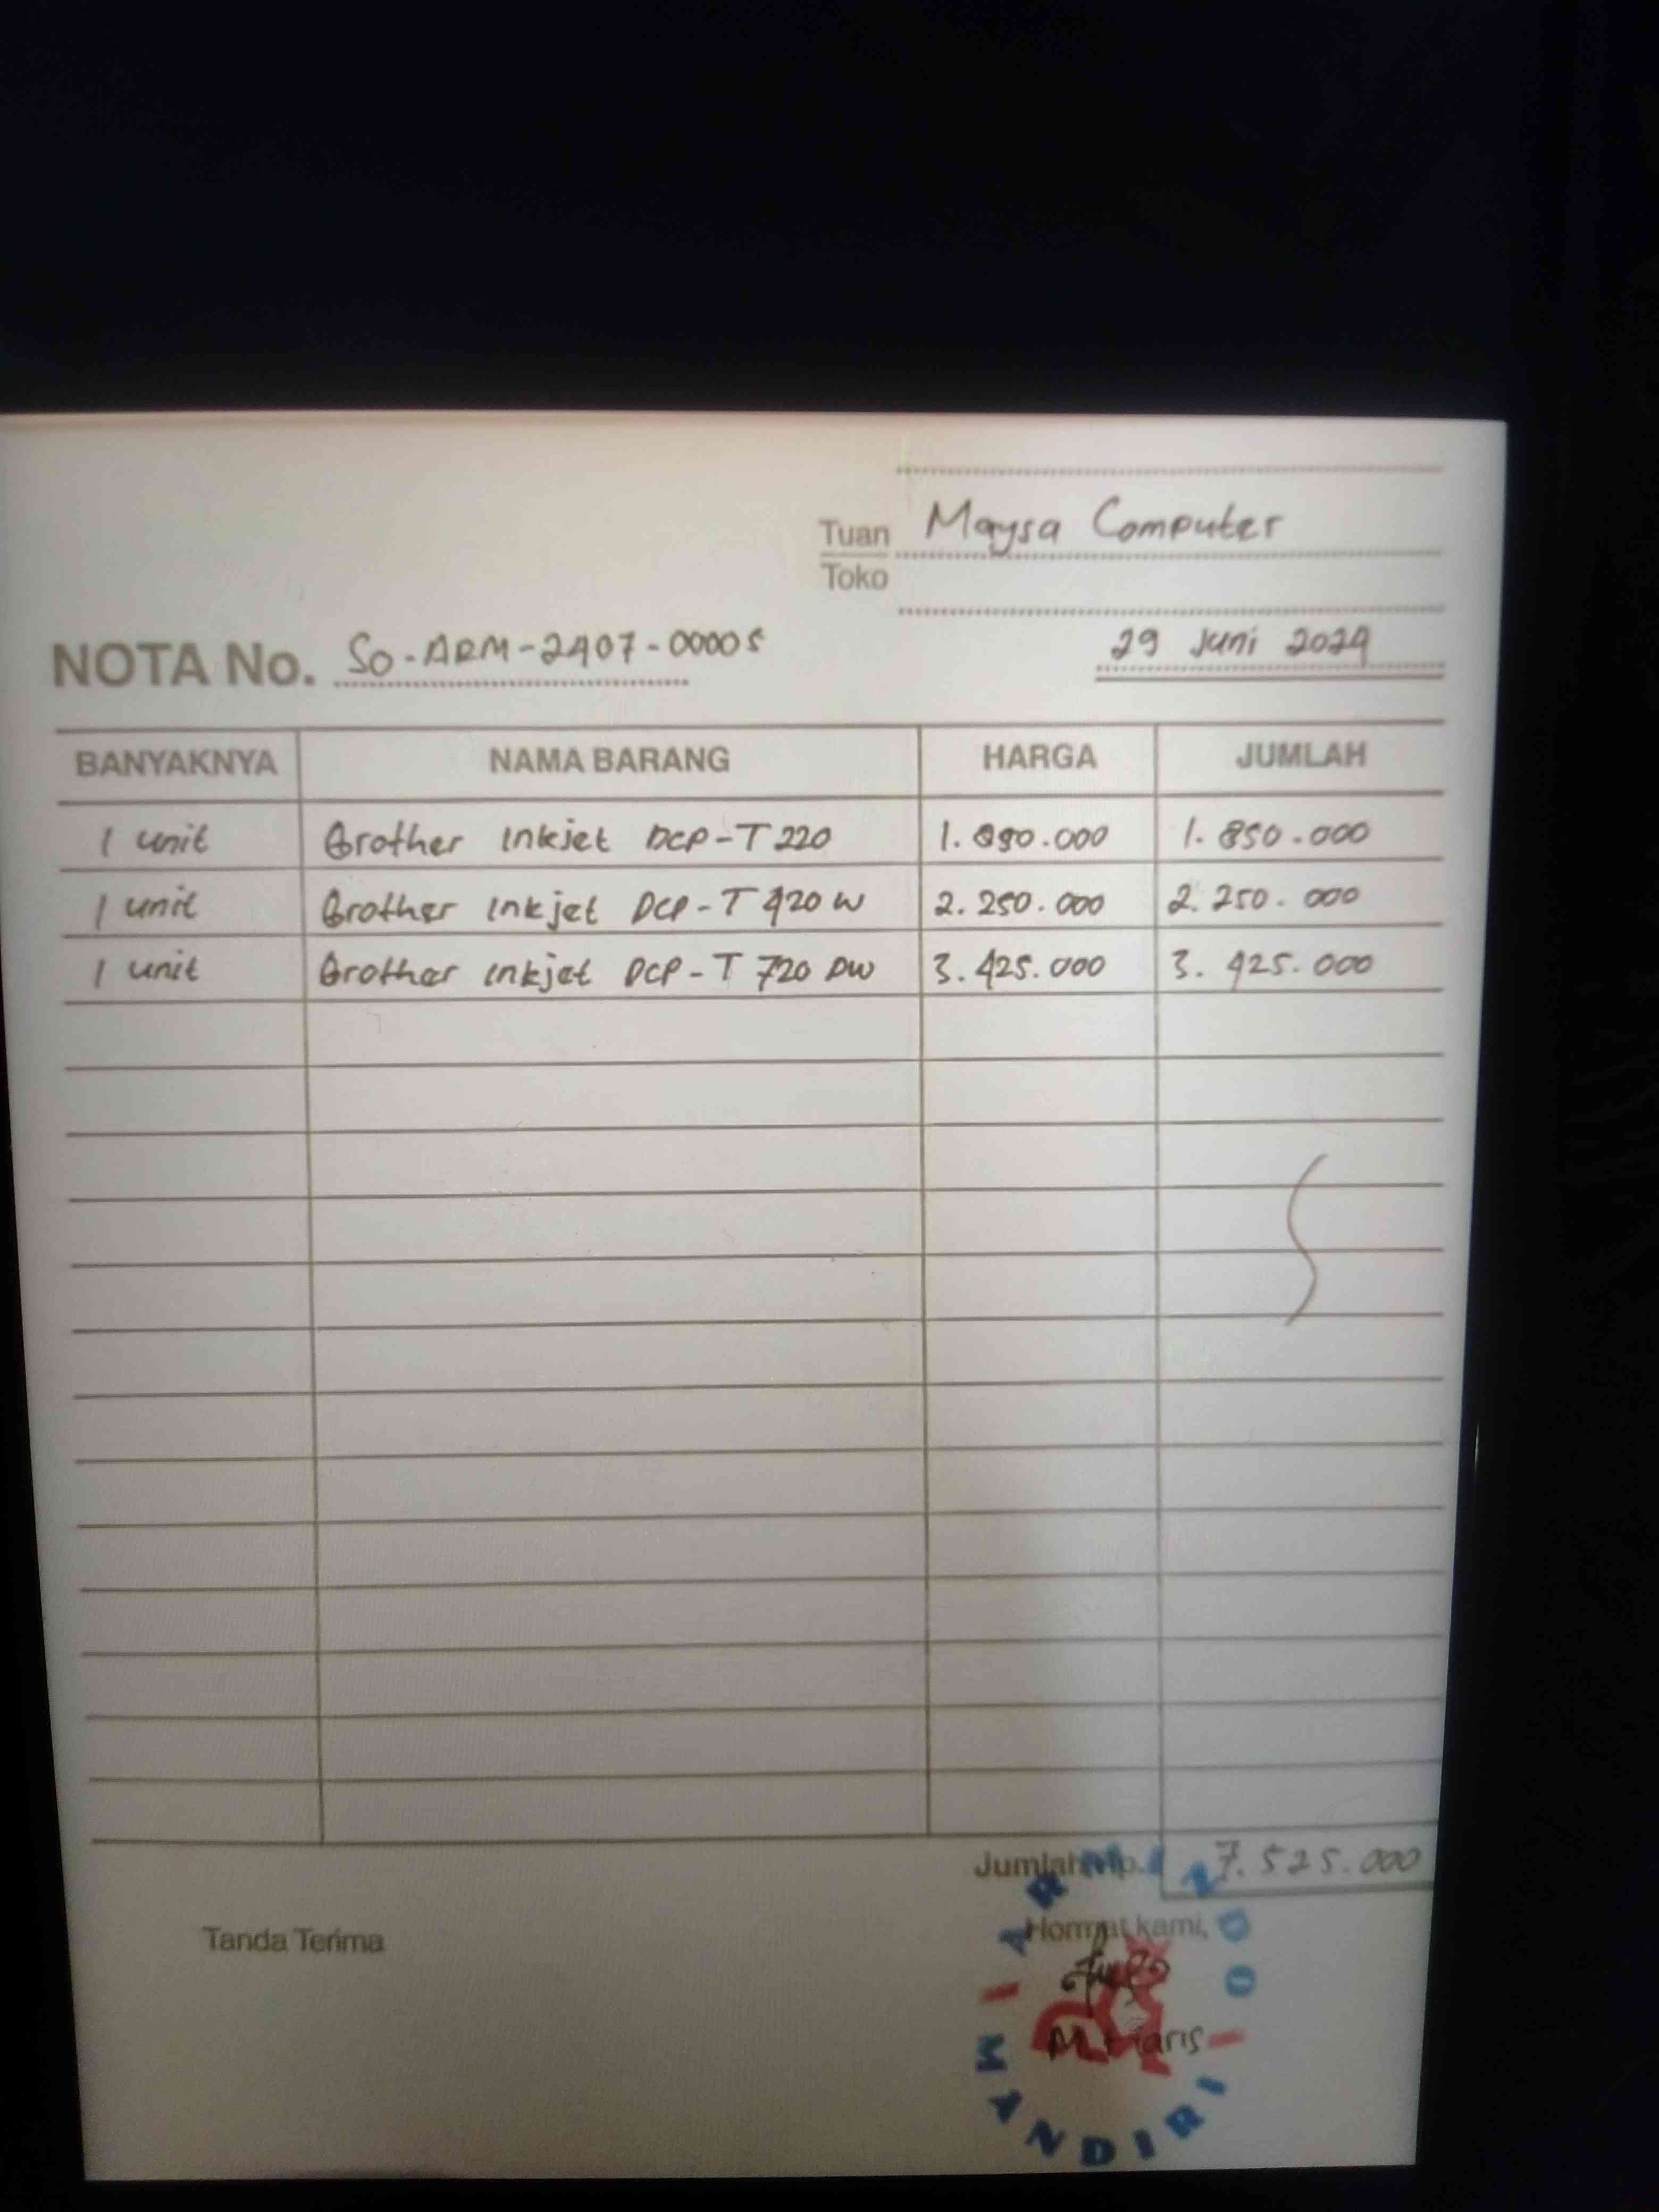 Tuan Maysa Computer
Toko
NOTA No. So-ARM-2407-00005
29 Juni 2024
BANYAKNYA NAMA BARANG HARGA JUMLAH
1 unit Brother Inkjet DCP-T220 1.850.000
1 unit Brother Inkjet DCP-T420W 2.250.000 2.250.000
1 unit Brother Inkjet DCP-T720DW 3.425.000 3.425.000
Jumlah Rp. 7.525.000
Tanda Terima Hormat kami,
M. Haris
MANDIRI